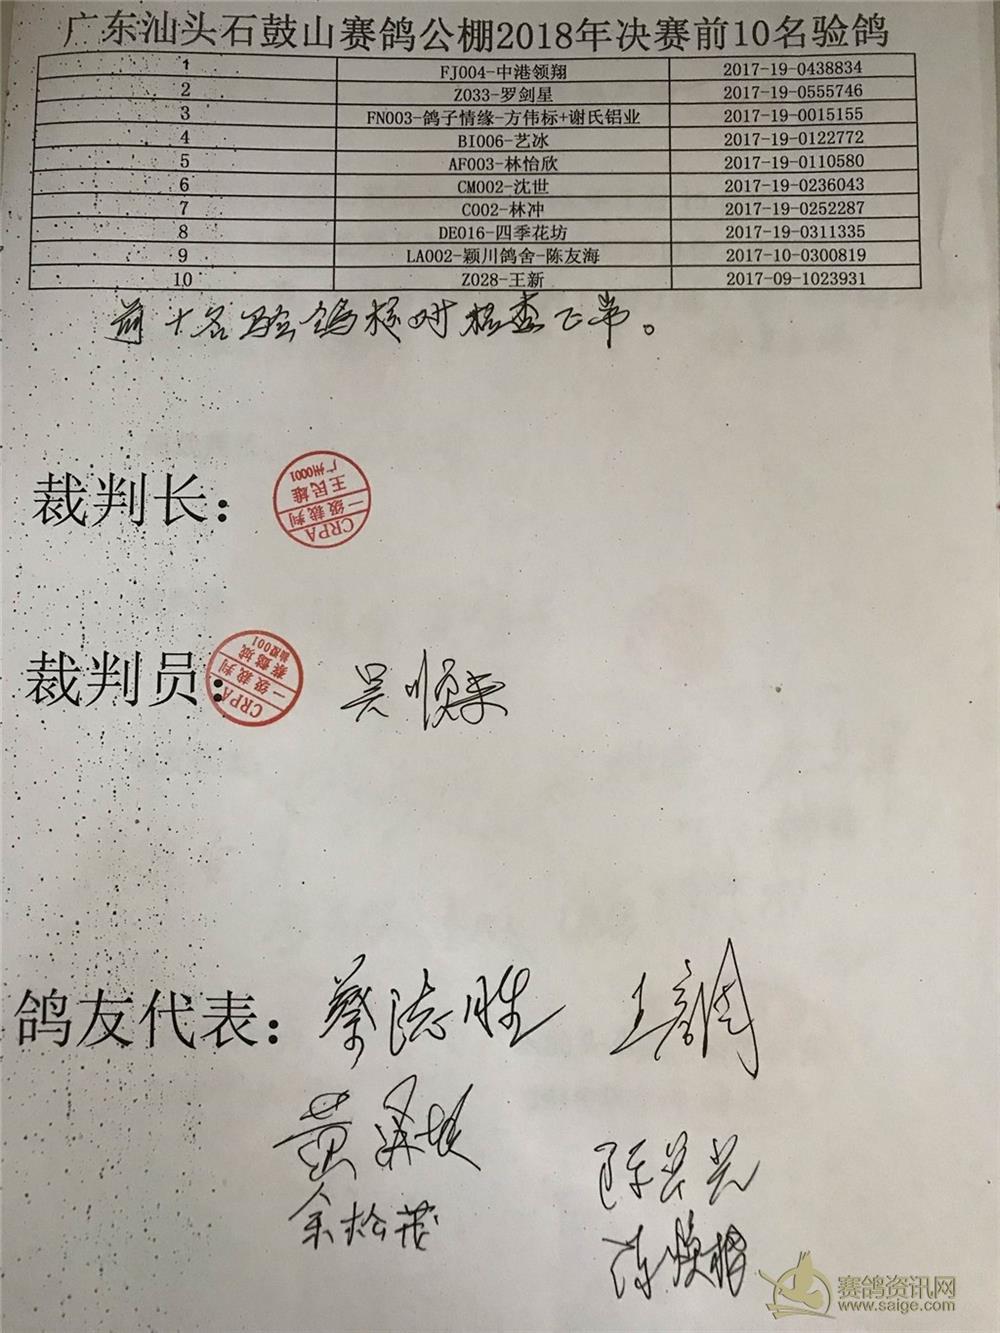 广东汕头石鼓山赛鸽公棚2018年决赛前10名验鸽
1 FJ004-中港领翔 2017-19-0438834
2 Z033-罗剑星 2017-19-0555746
3 FN003-鸽子情缘-方伟标+谢氏铝业 2017-19-0015155
4 BI006-艺冰 2017-19-0122772
5 AF003-林怡欣 2017-19-0110580
6 CM002-沈世 2017-19-0236043
7 C002-林冲 2017-19-0252287
8 DE016-四季花坊 2017-19-0311335
9 LA002-颖川鸽舍-陈友海 2017-10-0300819
10 Z028-王新 2017-09-1023931
前十名验鸽核对检查正常。
裁判长：
CRPA
一级裁判
王民雄
广州0001
裁判员：
CRPA
一级裁判
001
吴顺
鸽友代表：蔡志胜
黄
余松茂
陈
赛鸽资讯网
www.saige.com